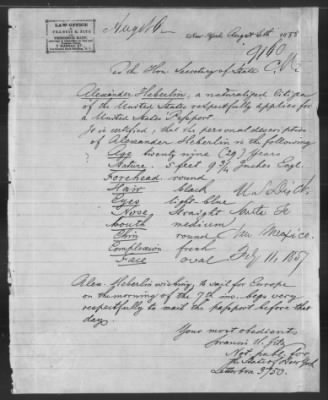 LAW OFFICE
OF
Aug 6
New York August 4th 1858
9160
To the Hon. Secretary of State
Alexander Heberlin, a naturalized Citizen
of the United States respectfully applies for
a United States Passport.
It is certified, that the personal description
of Alexander Heberlin is the following
Age twenty nine (29) years
5 feet 9 3/4 Inches Engl.
Forehead round
Hair black
Eyes light-blue
Nose straight
Mouth medium
Chin round
Complexion fresh
Face oval
U.S. Dist. Ct.
Santa Fe
New Mexico.
Feby 11, 1857
Alex. Heberlin wishing to sail for Europe
on the morning of the 7th ins. begs very
respectfully to mail the passport before that
day.
Your most obedient
Francis
Not. publ. for
the State of New York
Letterbox 3750.